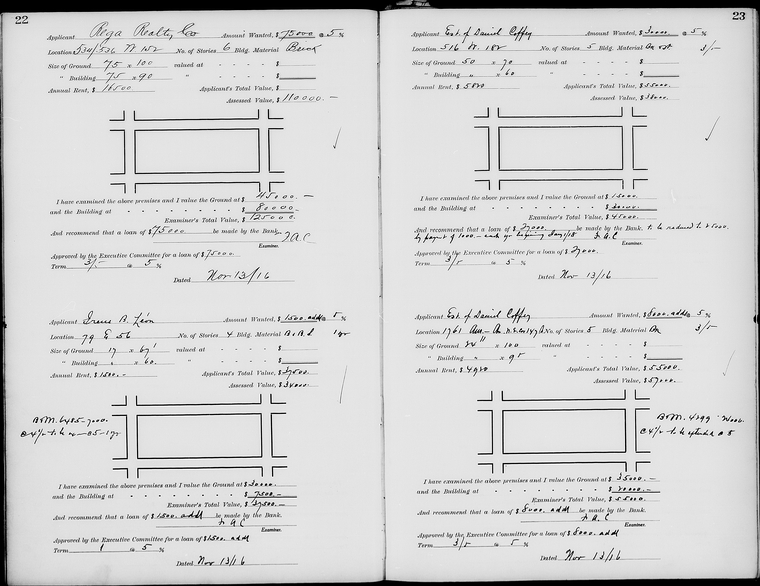 22
Applicant Rega Realty Co Amount Wanted, $ 75000 @ 5 %
Location 534/536 W 152 No. of Stories 6 Bldg. Material Brick
Size of Ground 75 x 100 valued at - - - - $
" Building 75 x 90 " - - - - $
Annual Rent, $ 16500 Applicant's Total Value, $
Assessed Value, $ 110000. —
I have examined the above premises and I value the Ground at $ 45000. —
and the Building at - - - - - - - - $ 80000
Examiner's Total Value, $ 125000.
And recommend that a loan of $ 75000 be made by the Bank.
F.A.C
Examiner.
Approved by the Executive Committee for a loan of $ 75000.
Term 3/5 @ 5 %
Dated Nov 13/16
Applicant Irene B. León Amount Wanted, $ 1500. addl @ 5 %
Location 79 E 56 No. of Stories 4 Bldg. Material B.B.S 1 yr
Size of Ground 17 x 67' valued at - - - - $
" Building " x 60. " - - - - $
Annual Rent, $ 1500. — Applicant's Total Value, $ 37500.
Assessed Value, $ 34000.
B&M. 6485-7000.
I have examined the above premises and I value the Ground at $ 30000.
and the Building at - - - - - - - - $ 7500. —
Examiner's Total Value, $ 37500. —
And recommend that a loan of $ 1500. addl be made by the Bank.
F.A.C
Examiner.
Approved by the Executive Committee for a loan of $ 1500. addl
Term 1 @ 5 %
Dated Nov 13/16
23
Applicant Est. of Daniel Coffey Amount Wanted, $ 30000. @ 5 %
Location 516 W. 182 No. of Stories 5 Bldg. Material 3/—
Size of Ground 50 x 70 valued at - - - - $
" Building " x 60 " - - - - $
Annual Rent, $ 5820 Applicant's Total Value, $ 55000.
Assessed Value, $ 38000.
I have examined the above premises and I value the Ground at $ 15000.
and the Building at - - - - - - - - $ 30000.
Examiner's Total Value, $ 45000.
And recommend that a loan of $ 27000. be made by the Bank. to be reduced to
by paymt of 1000. — each yr
F.A.C
Examiner.
Approved by the Executive Committee for a loan of $ 27000.
Term 3/5 @ 5 %
Dated Nov 13/16
Applicant Est. of Daniel Coffey Amount Wanted, $ 8000. addl @ 5 %
Location 1961 No. of Stories 5 Bldg. Material 3/5
Size of Ground 24" x 100 valued at - - - - $
" Building " x 95 " - - - - $
Annual Rent, $ 4920 Applicant's Total Value, $ 55000.
Assessed Value, $ 57000.
B&M. 4299
I have examined the above premises and I value the Ground at $ 35000. —
and the Building at - - - - - - - - $ 20000. —
Examiner's Total Value, $ 55000.
And recommend that a loan of $ 8000. addl be made by the Bank.
F.A.C
Examiner.
Approved by the Executive Committee for a loan of $ 8000. addl
Term 3/5 @ 5 %
Dated Nov 13/16